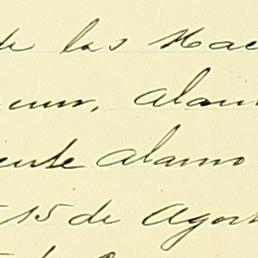 de las Hac
Alam
ente Alamo
15 de Agost